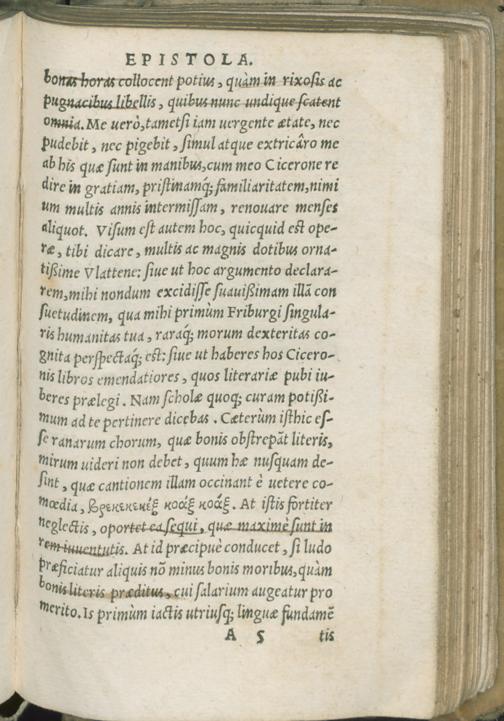 EPISTOLA.
bonas horas collocent potius, quàm in rixosis ac
pugnacibus libellis, quibus nunc undique scatent
omnia. Me uerò, tametsi iam uergente ætate, nec
pudebit, nec pigebit, simul atque extricâro me
ab his quæ sunt in manibus, cum meo Cicerone re
dire in gratiam, pristinamq́; familiaritatem, nimi
um multis annis intermissam, renouare menses
aliquot. Visum est autem hoc, quicquid est ope-
ræ, tibi dicare, multis ac magnis dotibus orna-
tissime Vlattene: siue ut hoc argumento declara-
rem, mihi nondum excidisse suauissimam illã con
suetudinem, qua mihi primùm Friburgi singula-
ris humanitas tua, raraq́; morum dexteritas co-
gnita perspectaq́; est: siue ut haberes hos Cicero-
nis libros emendatiores, quos literariæ pubi iu-
beres prælegi. Nam scholæ quoq; curam potissi-
mum ad te pertinere dicebas. Cæterùm isthic es-
se ranarum chorum, quæ bonis obstrepãt literis,
mirum uideri non debet, quum hæ nusquam de-
sint, quæ cantionem illam occinant è uetere co-
mœdia, βρεκεκεκὲξ κοὰξ κοάξ. At istis fortiter
neglectis, oportet ea sequi, quæ maximè sunt in
rem iuuentutis. At id præcipuè conducet, si ludo
præficiatur aliquis nõ minus bonis moribus, quàm
bonis literis præditus, cui salarium augeatur pro
merito. Is primùm iactis utriusq; linguæ fundamẽ
A 5 tis